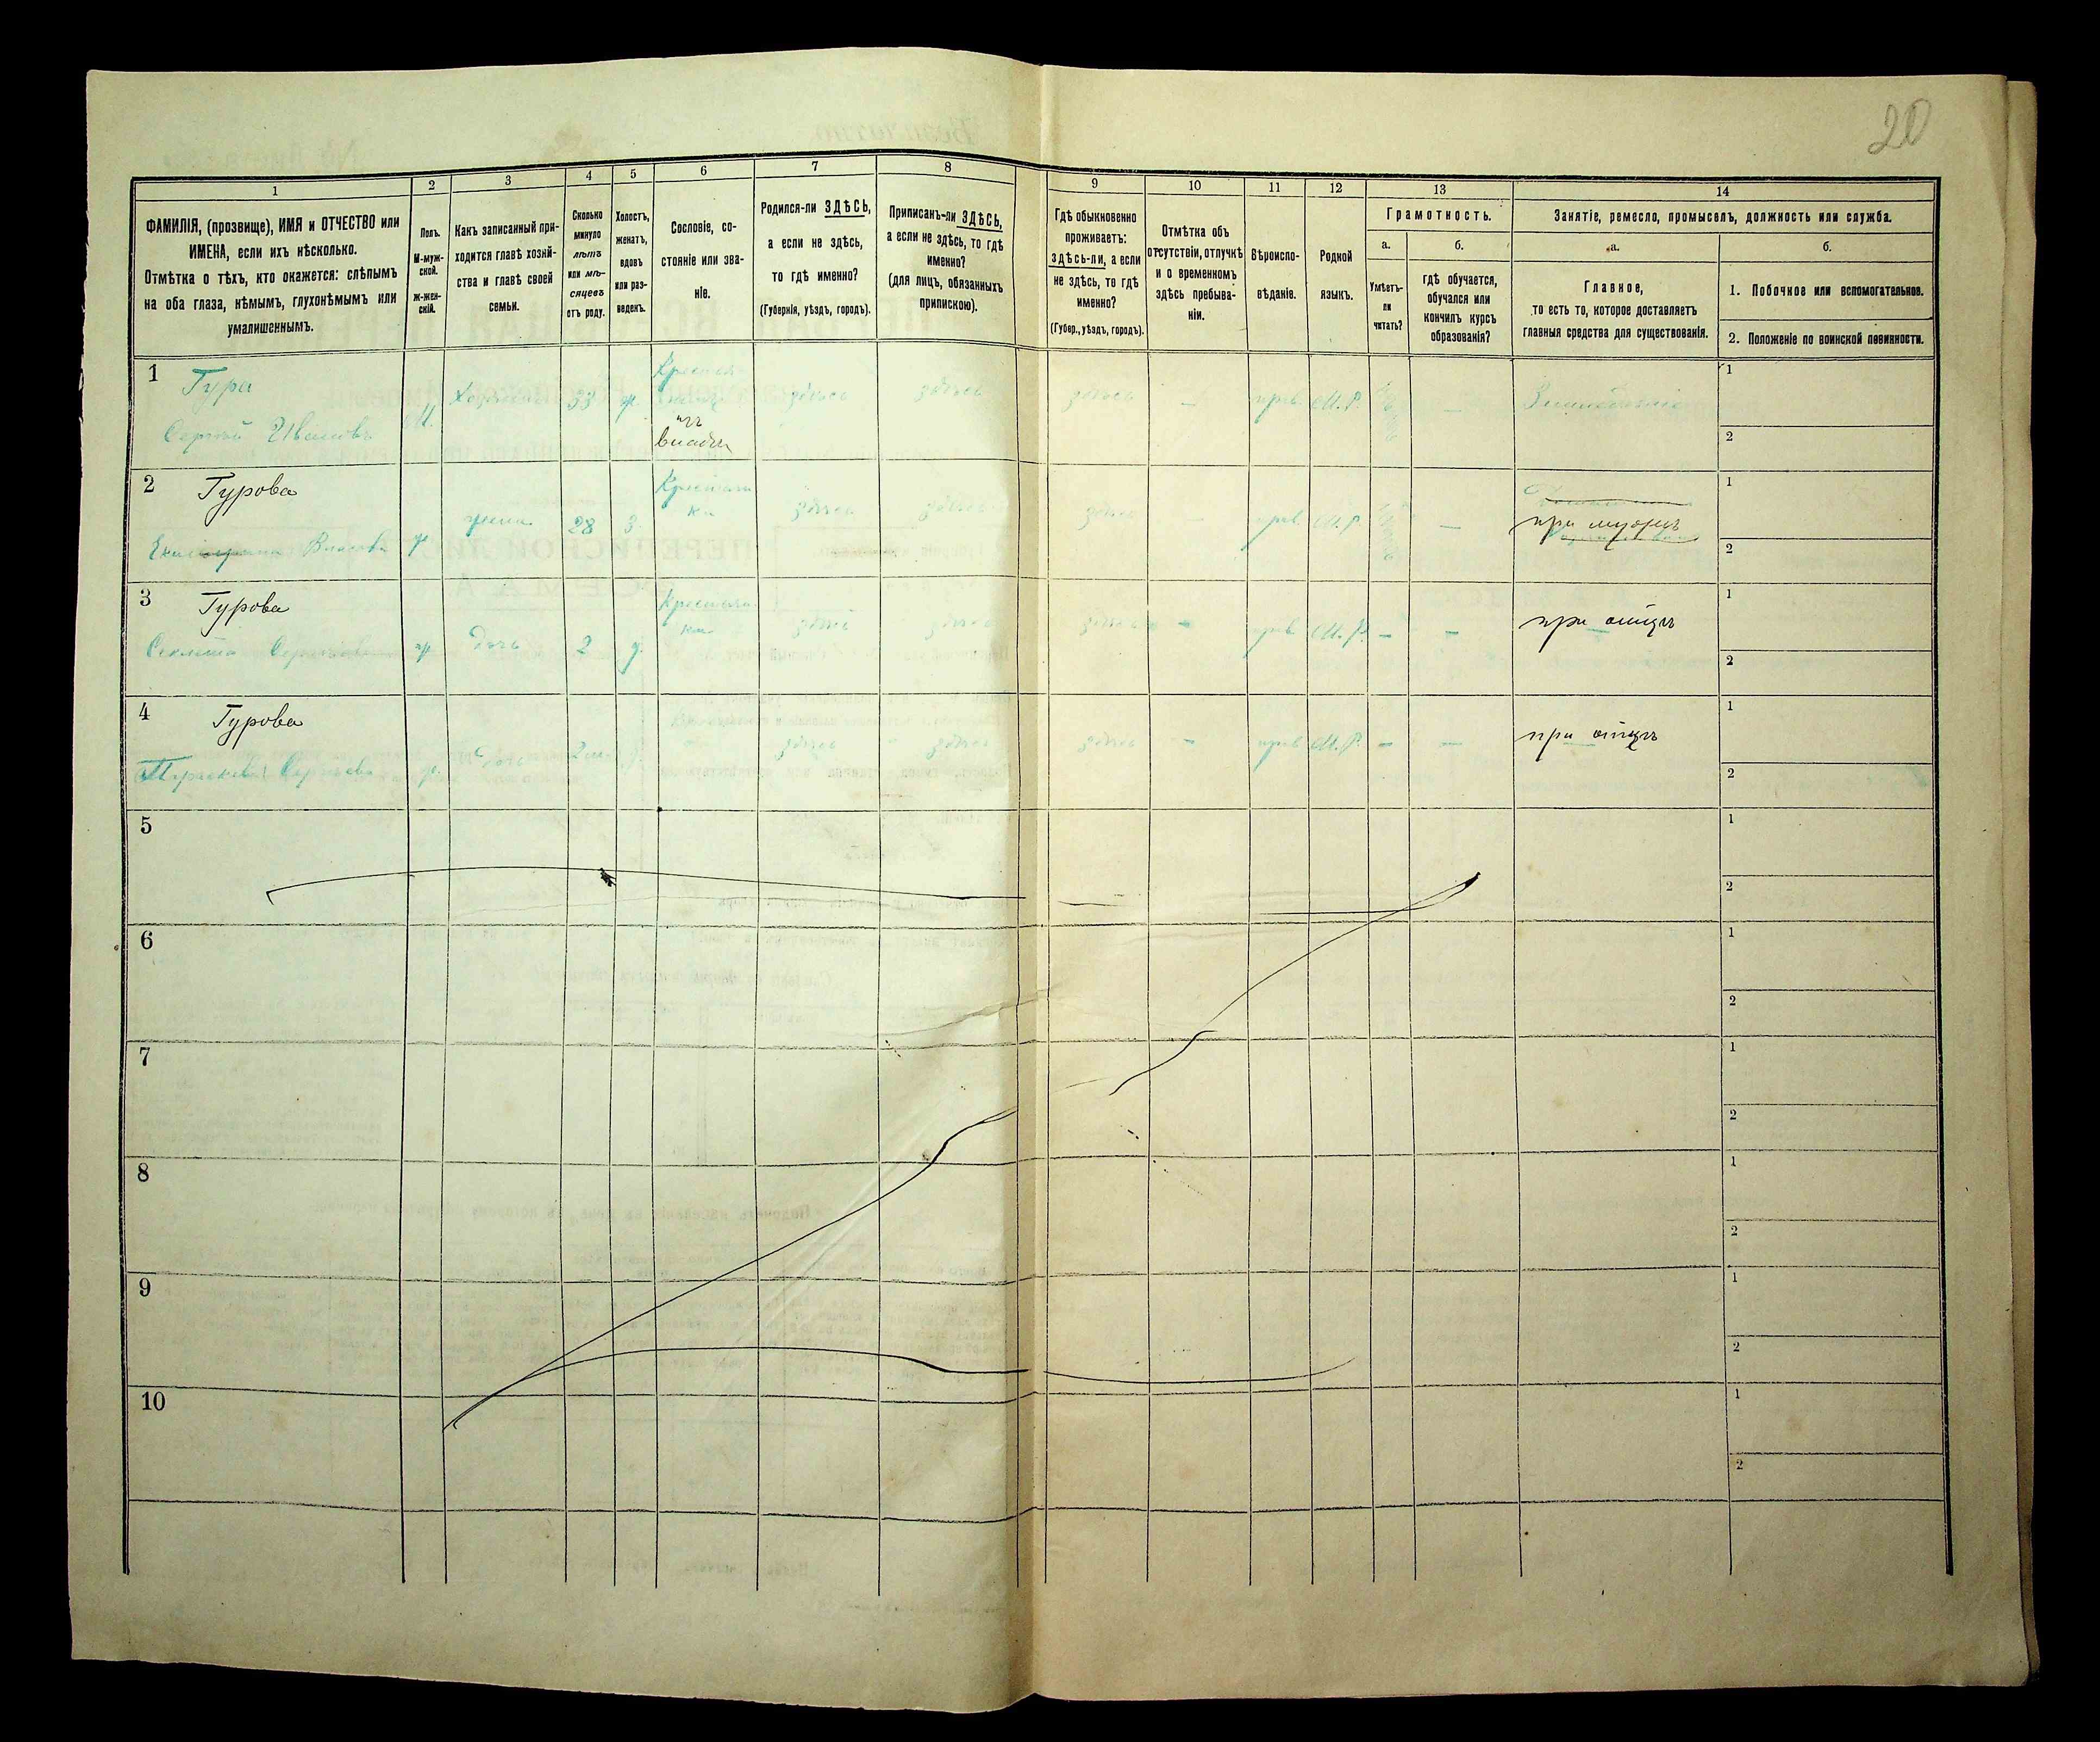 20
1
2
3
4
5
6
7
8
9
10
11
12
13
14
ФАМИЛІЯ, (прозвище), ИМЯ и ОТЧЕСТВО или
ИМЕНА, если ихъ нѣсколько.
Отмѣтка о тѣхъ, кто окажется: слѣпымъ
на оба глаза, нѣмымъ, глухонѣмымъ или
умалишеннымъ.
Полъ.
М-муж-
ской.
ж-жен-
скій.
Какъ записанный при-
ходится главѣ хозяй-
ства и главѣ своей
семьи.
Сколько
минуло
лѣтъ
или мѣ-
сяцевъ
отъ роду.
Холостъ,
женатъ,
вдовъ
или раз-
веденъ.
Сословіе, со-
стояніе или зва-
ніе.
Родился-ли ЗДѢСЬ,
а если не здѣсь,
то гдѣ именно?
(Губернія, уѣздъ, городъ).
Приписанъ-ли ЗДѢСЬ,
а если не здѣсь, то гдѣ
именно?
(для лицъ, обязанныхъ
припискою).
Гдѣ обыкновенно
проживаетъ:
здѣсь-ли, а если
не здѣсь, то гдѣ
именно?
(Губер., уѣздъ, городъ).
Отмѣтка объ
отсутствіи, отлучкѣ
и о временномъ
здѣсь пребыва-
ніи.
Вѣроиспо-
вѣданіе.
Родной
языкъ.
Грамотность.
а.
Умѣетъ-
ли
читать?
б.
гдѣ обучается,
обучался или
кончилъ курсъ
образованія?
Занятіе, ремесло, промыселъ, должность или служба.
а.
Главное,
то есть то, которое доставляетъ
главныя средства для существованія.
б.
1. Побочное или вспомогательное.
2. Положеніе по воинской повинности.
1
Гура
Сергѣй Ивановъ
М.
33
здѣсь
здѣсь
здѣсь
—
прав.
М.Р.
—
1
2
2
Гурова
Власова
ж
жена
28
з.
Крестьян
ка
здѣсь
здѣсь
здѣсь
—
прав.
М.Р.
—
при мужѣ
1
2
3
Гурова
ж.
дочь
2
д.
Крестьян
ка
здѣсь
здѣсь
здѣсь
—
прав.
М.Р.
—
—
при отцѣ
1
2
4
Гурова
Сергѣева
ж.
дочь
здѣсь
здѣсь
здѣсь
—
прав.
М.Р.
—
—
при отцѣ
1
2
5
1
2
6
1
2
7
1
2
8
1
2
9
1
2
10
1
2